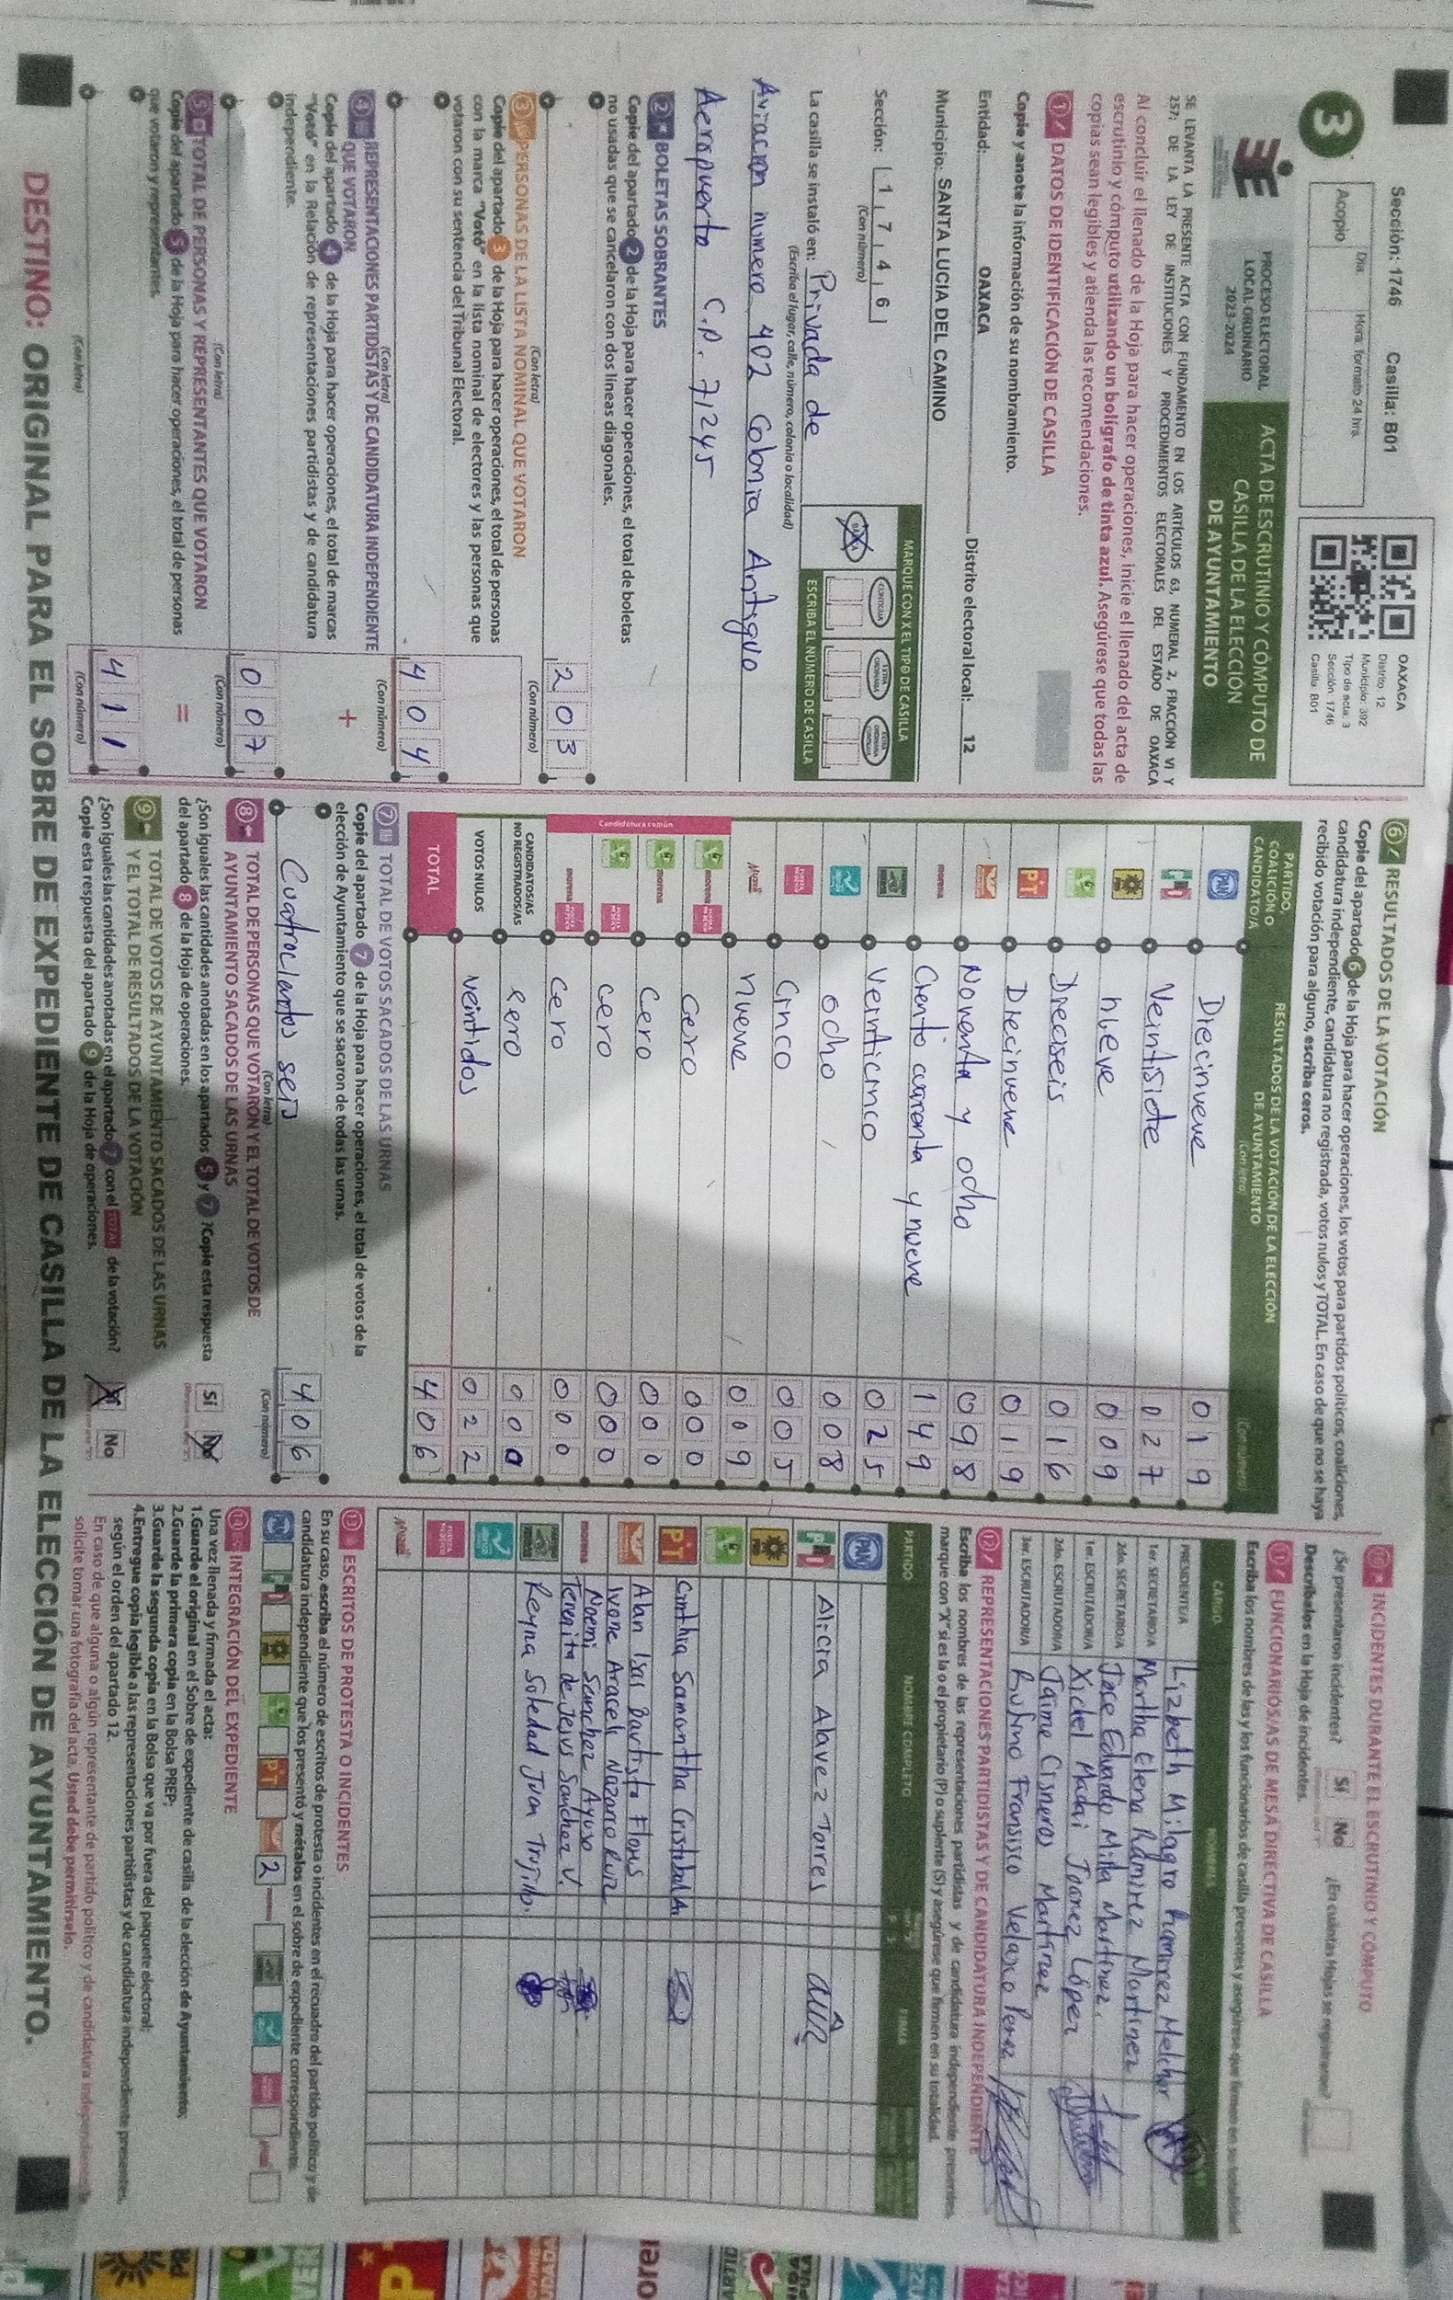 Sección: 1746 Casilla: B01
Día Hora: formato 24 hrs.
Acopio
3
OAXACA
Distrito 12
Municipio: 392
Tipo de acta: 3
Sección: 1746
Casilla: B01
PROCESO ELECTORAL
LOCAL ORDINARIO
2023-2024
ACTA DE ESCRUTINIO Y CÓMPUTO DE
CASILLA DE LA ELECCIÓN
DE AYUNTAMIENTO
SE LEVANTA LA PRESENTE ACTA CON FUNDAMENTO EN LOS ARTÍCULOS 63, NUMERAL 2, FRACCIÓN VI Y
257; DE LA LEY DE INSTITUCIONES Y PROCEDIMIENTOS ELECTORALES DEL ESTADO DE OAXACA
Al concluir el llenado de la Hoja para hacer operaciones, inicie el llenado del acta de
escrutinio y cómputo utilizando un bolígrafo de tinta azul. Asegúrese que todas las
copias sean legibles y atienda las recomendaciones.
1 DATOS DE IDENTIFICACIÓN DE CASILLA
Copie y anote la información de su nombramiento.
Entidad: OAXACA Distrito electoral local: 12
Municipio: SANTA LUCIA DEL CAMINO
Sección: 1 7 4 6
(Con número)
MARQUE CON X EL TIPO DE CASILLA
BÁSICA CONTIGUA EXTRAORDINARIA EXTRAORDINARIA CONTIGUA
ESCRIBA EL NÚMERO DE CASILLA
La casilla se instaló en: Privada de
(Escriba el lugar, calle, número, colonia o localidad)
Aviacion numero 402 Colonia Antiguo
Aeropuerto C.P. 71245
2 BOLETAS SOBRANTES
Copie del apartado 2 de la Hoja para hacer operaciones, el total de boletas
no usadas que se cancelaron con dos líneas diagonales.
203
(Con letra) (Con número)
3 PERSONAS DE LA LISTA NOMINAL QUE VOTARON
Copie del apartado 3 de la Hoja para hacer operaciones, el total de personas
con la marca "Votó" en la lista nominal de electores y las personas que
votaron con su sentencia del Tribunal Electoral.
404
(Con letra) (Con número)
4 REPRESENTACIONES PARTIDISTAS Y DE CANDIDATURA INDEPENDIENTE
QUE VOTARON
+
Copie del apartado 4 de la Hoja para hacer operaciones, el total de marcas
"Votó" en la Relación de representaciones partidistas y de candidatura
independiente.
007
(Con letra) (Con número)
5 TOTAL DE PERSONAS Y REPRESENTANTES QUE VOTARON
=
Copie del apartado 5 de la Hoja para hacer operaciones, el total de personas
que votaron y representantes.
411
(Con letra) (Con número)
6 RESULTADOS DE LA VOTACIÓN
Copie del apartado 6 de la Hoja para hacer operaciones, los votos para partidos políticos, coaliciones,
candidatura independiente, candidatura no registrada, votos nulos y TOTAL. En caso de que no se haya
recibido votación para alguno, escriba ceros.
PARTIDO,
COALICIÓN O
CANDIDATO/A
RESULTADOS DE LA VOTACIÓN DE LA ELECCIÓN
DE AYUNTAMIENTO
(Con letra) (Con número)
PAN Diecinueve 019
PRI Veintisiete 027
PRD nueve 009
Dieciseis 016
PT Diecinueve 019
Noventa y ocho 098
morena Ciento cuarenta y nueve 149
Veinticinco 025
ocho 008
Cinco 005
nueve 009
Candidatura común
morena cero 000
morena Cero 000
cero 000
morena Cero 000
CANDIDATOS/AS
NO REGISTRADOS/AS cero 000
VOTOS NULOS veintidos 022
TOTAL 406
7 TOTAL DE VOTOS SACADOS DE LAS URNAS
Copie del apartado 7 de la Hoja para hacer operaciones, el total de votos de la
elección de Ayuntamiento que se sacaron de todas las urnas.
Cuatrocientos seis 406
(Con letra) (Con número)
8 TOTAL DE PERSONAS QUE VOTARON Y EL TOTAL DE VOTOS DE
AYUNTAMIENTO SACADOS DE LAS URNAS
¿Son iguales las cantidades anotadas en los apartados 5 y 7 ? Copie esta respuesta
del apartado 8 de la Hoja de operaciones.
Sí No
9 TOTAL DE VOTOS DE AYUNTAMIENTO SACADOS DE LAS URNAS
Y EL TOTAL DE RESULTADOS DE LA VOTACIÓN
¿Son iguales las cantidades anotadas en el apartado 7 con el TOTAL de la votación?
Copie esta respuesta del apartado 9 de la Hoja de operaciones.
Sí No
10 INCIDENTES DURANTE EL ESCRUTINIO Y CÓMPUTO
¿Se presentaron incidentes? Sí No ¿En cuántas Hojas se registraron?
Descríbalos en la Hoja de incidentes.
11 FUNCIONARIOS/AS DE MESA DIRECTIVA DE CASILLA
Escriba los nombres de las y los funcionarios de casilla presentes y asegúrese que firmen en su totalidad.
CARGO NOMBRES
PRESIDENTE/A Lizbeth Milagro Ramirez Melchor
1er. SECRETARIO/A Martha Elena Ramirez Martinez
2do. SECRETARIO/A Jose Eduardo Milla Martinez.
1er. ESCRUTADOR/A Xichel Madai Joarez López
2do. ESCRUTADOR/A Jaime Cisneros Martinez
3er. ESCRUTADOR/A Rufino Fransisco Velasco Perez
12 REPRESENTACIONES PARTIDISTAS Y DE CANDIDATURA INDEPENDIENTE
Escriba los nombres de las representaciones partidistas y de candidatura independiente presentes,
marque con "X" si es la o el propietario (P) o suplente (S) y asegúrese que firmen en su totalidad.
PARTIDO NOMBRE COMPLETO FIRMA
PAN
PRI Alicia Alavez Torres
PT Cinthia Samantha Cristobal A.
Alan Isai Bautista Flores
Ivone Araceli Nazario Ruiz
morena Noemi Sanchez Ayuso
Teresita de Jesus Sanchez V.
Reyna Soledad Juan Trujillo.
13 ESCRITOS DE PROTESTA O INCIDENTES
En su caso, escriba el número de escritos de protesta o incidentes en el recuadro del partido político y de
candidatura independiente que los presentó y métalos en el sobre de expediente correspondiente.
PAN PT 2
14 INTEGRACIÓN DEL EXPEDIENTE
Una vez llenada y firmada el acta:
1.Guarde el original en el Sobre de expediente de casilla de la elección de Ayuntamiento;
2.Guarde la primera copia en la Bolsa PREP;
3.Guarde la segunda copia en la Bolsa que va por fuera del paquete electoral;
4.Entregue copia legible a las representaciones partidistas y de candidatura independiente presentes,
según el orden del apartado 12.
En caso de que alguna o algún representante de partido político y de candidatura independiente
solicite tomar una fotografía del acta. Usted debe permitírselo.
DESTINO: ORIGINAL PARA EL SOBRE DE EXPEDIENTE DE CASILLA DE LA ELECCIÓN DE AYUNTAMIENTO.